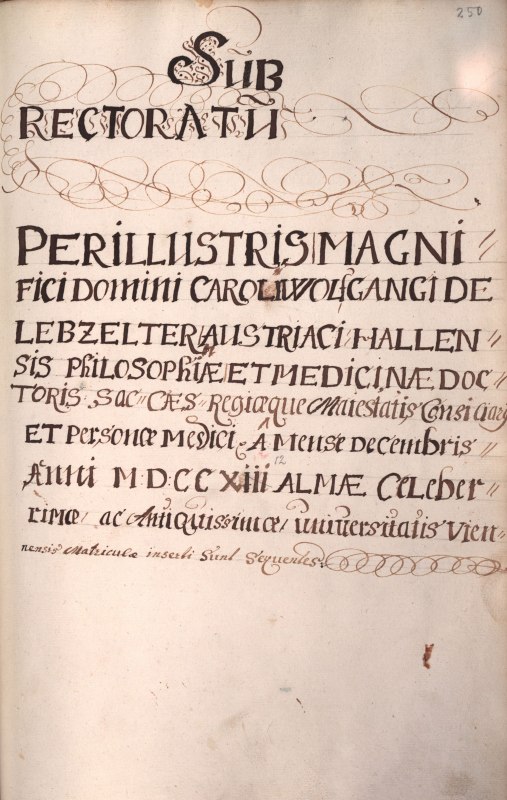 250
SUB
RECTORATŨ
PERILLUSTRIS MAGNI//
FICI DOMINI CAROLI WOLFGANGI DE
LEBZELTER AUSTRIACI HALLEN//
SIS PHILOSOPHIÆ ET MEDICINÆ DOC//
TORIS SAC= CÆS= Regiæque Maiestatis Consiliarij
ET Personæ Medici. A Mense Decembris
12
Anni M·D·CC XIII ALMÆ Celeber//
rimæ ac Antiquissimæ universitatis Vien//
nensis Matriculæ inserti sunt Sequentes.